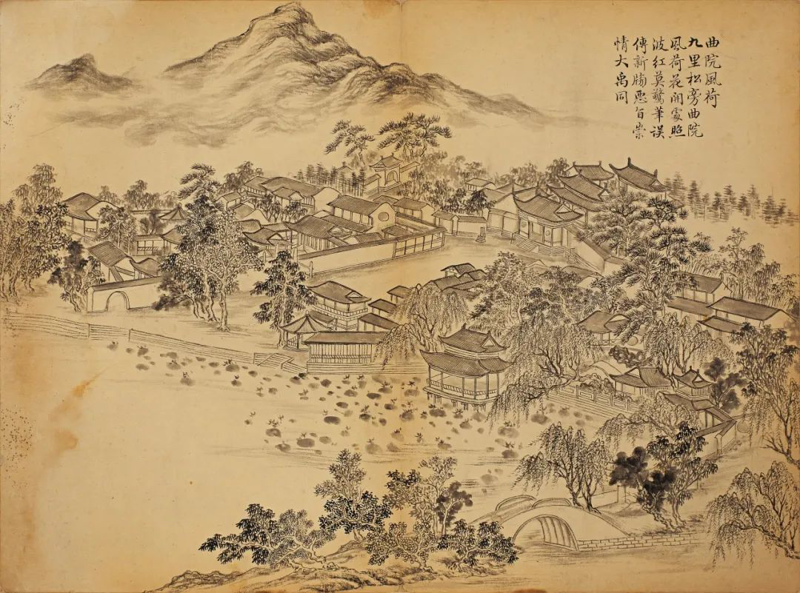 曲院風荷
九里松旁曲院
風荷花開處照
波紅莫驚筆誤
傳新牓惡旨崇
情大禹同